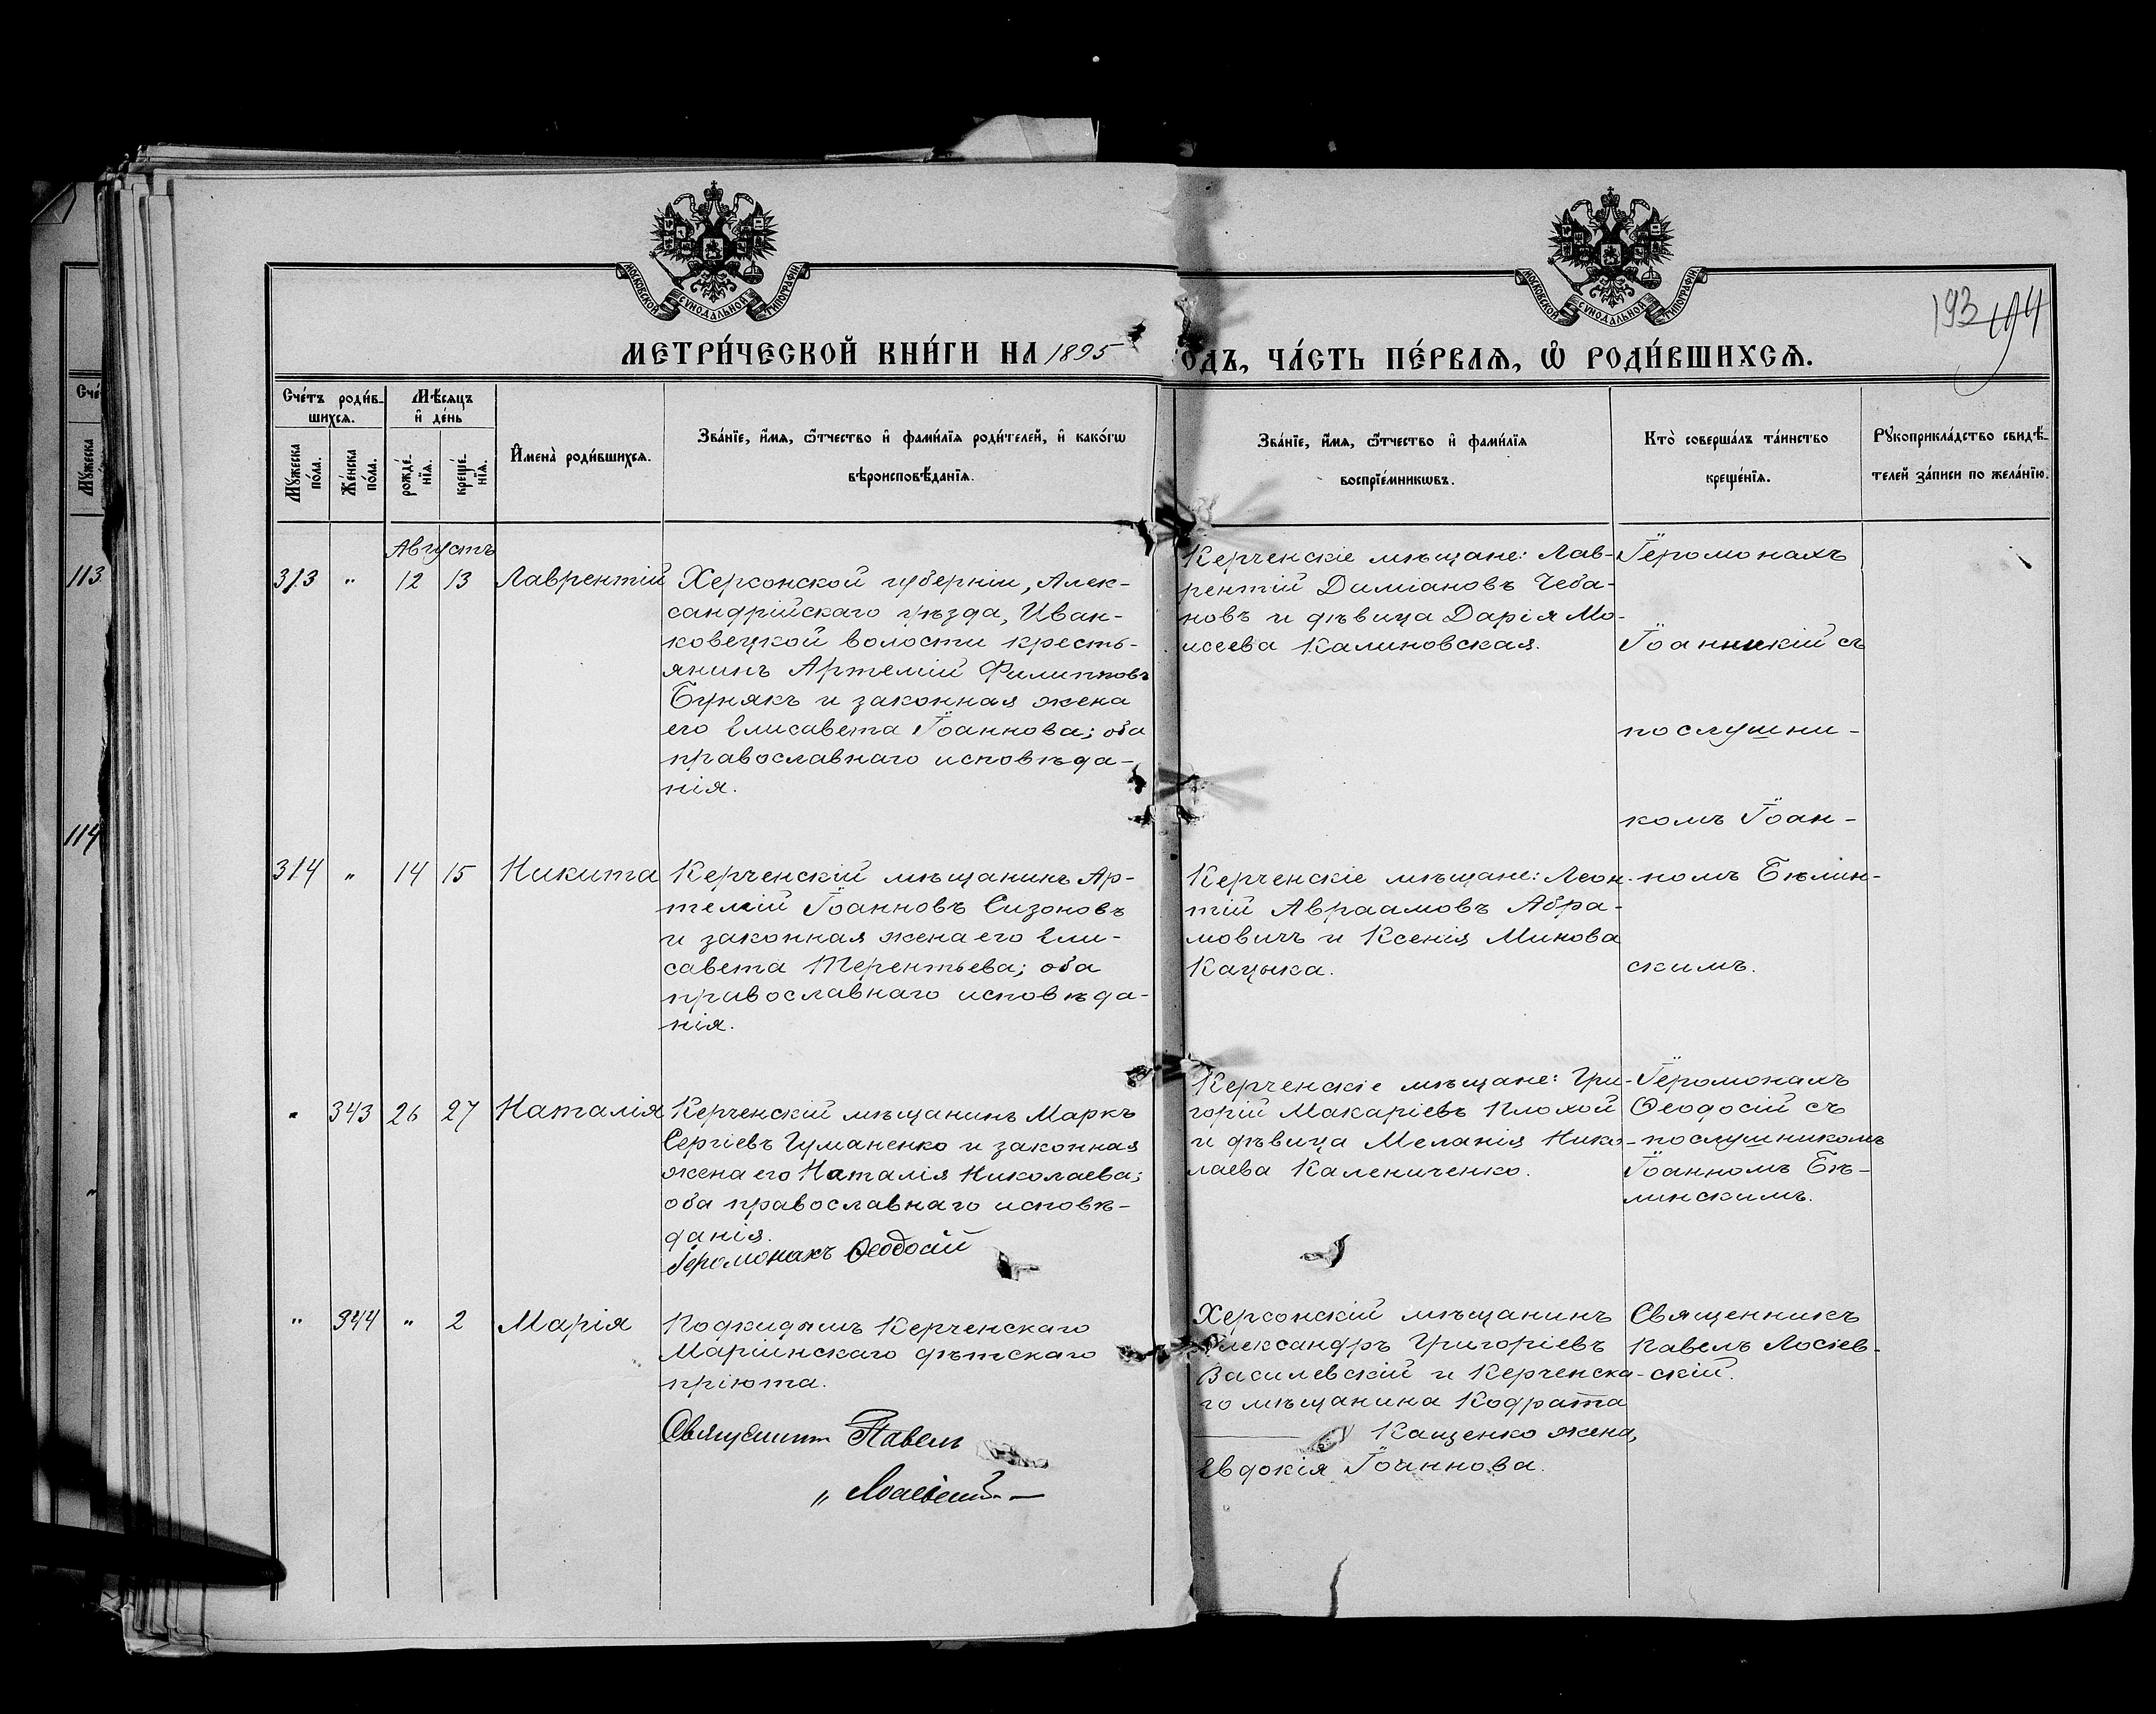 МОСКОВСКОЙ СѴНОДАЛЬНОЙ ТИПОГРАФІИ
МОСКОВСКОЙ СѴНОДАЛЬНОЙ ТИПОГРАФІИ
193 194
МЕТРИ́ЧЕСКОЙ КНИ́ГИ НА 1895
ОДЪ, ЧА́СТЬ ПЕ́РВАѦ, Ѡ РОДИ́ВШИХСѦ.
Сче́тъ роди́в-
шихсѧ.
Мѣ́сѧцъ
и҆ де́нь
Мꙋ́жеска
по́ла.
Же́нска
по́ла.
рожде́-
нїѧ.
креще́-
нїѧ.
И҆мена̀ роди́вшихсѧ.
Зва́нїе, и҆́мѧ, ѻ҆́тчество и҆ фами́лїѧ роди́телей, и҆ како́гѡ
вѣроисповѣ́данїѧ.
Зва́нїе, и҆́мѧ, ѻ҆́тчество и҆ фами́лїѧ
воспрїе́мникѡвъ.
Кто̀ соверша́лъ та́инство
креще́нїѧ.
Рꙋкоприкла́дство свидѣ́-
телей за́писи по жела́нїю.
Августъ
313 " 12 13 Лаврентій
Херсонской губерніи, Алек-
сандрійскаго уѣзда, Иван-
ковецкой волости кресть-
янинъ Артемій Филипповъ
Буняκъ и законная жена
его Елисавета Іоаннова; оба
православнаго исповѣда-
нія.
Керченскіе мѣщане: Лав-
рентій Диміановъ Чеба-
новъ и дѣвица Дарія Мо-
исеева Калиновская.
Іеромонахъ
Іоанникій съ
послушни-
комъ Іоан-
номъ Бѣлин-
скимъ.
314 " 14 15 Никита
Керченскій мѣщанинъ Ар-
темій Іоанновъ Сизоновъ
и законная жена его Ели-
савета Терентьева; оба
православнаго исповѣда-
нія.
Керченскіе мѣщане: Леон-
тій Авраамовъ Абра-
мовичъ и Ксенія Минова
Кацыка.
" 343 26 27 Наталія
Керченскій мѣщанинъ Маркъ
Сергіевъ Гуманенко и законная
жена его Наталія Николаева;
оба православнаго исповѣ-
данія.
Іеромонахъ Ѳеодосій
Керченскіе мѣщане: Гри-
горій Макаріевъ Плохой
и дѣвица Меланія Нико-
лаева Калениченко.
Іеромонахъ
Ѳеодосій съ
послушникомъ
Іоанномъ Бѣ-
линскимъ.
" 344 " 2 Марія
Подкидышъ Керченскаго
Маріинскаго дѣтскаго
пріюта.
Священникъ Павелъ
" Лосіевскій
Херсонскій мѣщанинъ
Александръ Григоріевъ
Василевскій и Керченска-
го мѣщанина Кодрата
Кащенко жена,
Евдокія Іоаннова.
Священникъ
Павелъ Лосіев-
скій.
Сче́
Мꙋ́жеска
113
114
"